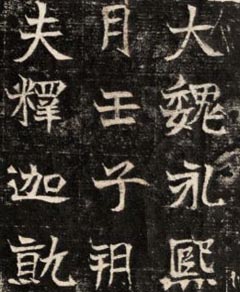 大魏永熙
月壬子朔
夫釋迦就